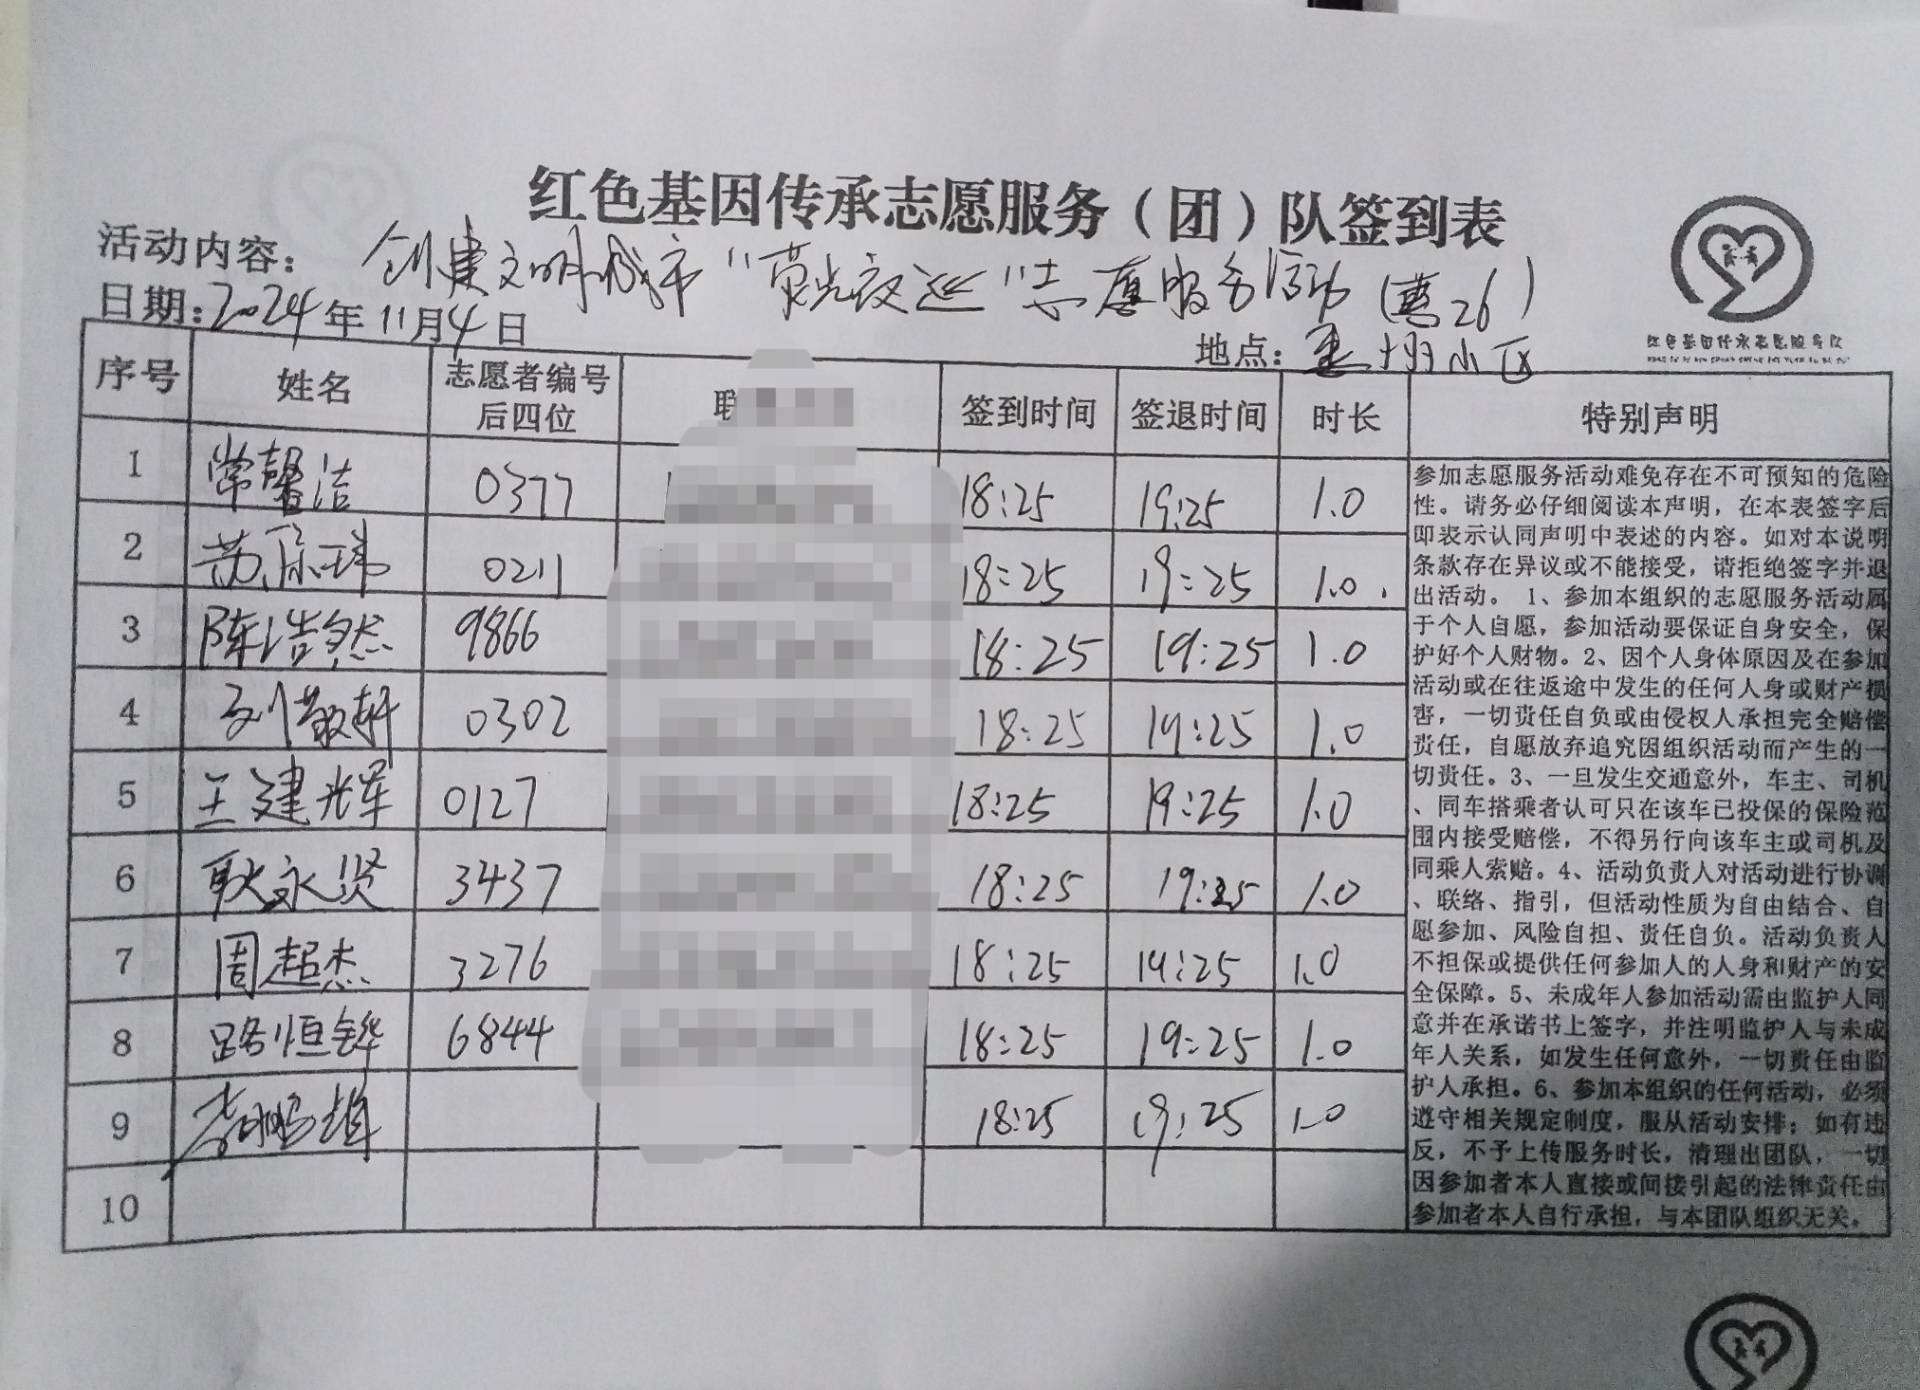 红色基因传承志愿服务（团）队签到表
活动内容：创建文明城市"萤光夜巡"志愿服务活动(26)
日期：2024年11月4日
地点：小区
序号 姓名 志愿者编号后四位 联 签到时间 签退时间 时长 特别声明
1 常馨洁 0377 18:25 19:25 1.0
2 苏 玮 0211 18:25 19:25 1.0
3 陈浩然 9866 18:25 19:25 1.0
4 刘敬轩 0302 18:25 19:25 1.0
5 王建光军 0127 18:25 19:25 1.0
6 耿永贤 3437 18:25 19:25 1.0
7 周超杰 3276 18:25 19:25 1.0
8 路恒铧 6844 18:25 19:25 1.0
9 李鹏雄 18:25 19:25 1.0
10
参加志愿服务活动难免存在不可预知的危险
性。请务必仔细阅读本声明，在本表签字后
即表示认同声明中表述的内容。如对本说明
条款存在异议或不能接受，请拒绝签字并退
出活动。 1、参加本组织的志愿服务活动属
于个人自愿，参加活动要保证自身安全，保
护好个人财物。2、因个人身体原因及在参加
活动或在往返途中发生的任何人身或财产损
害，一切责任自负或由侵权人承担完全赔偿
责任，自愿放弃追究因组织活动而产生的一
切责任。3、一旦发生交通意外，车主、司机
、同车搭乘者认可只在该车已投保的保险范
围内接受赔偿，不得另行向该车主或司机及
同乘人索赔。4、活动负责人对活动进行协调
、联络、指引，但活动性质为自由结合、自
愿参加、风险自担、责任自负。活动负责人
不担保或提供任何参加人的人身和财产的安
全保障。5、未成年人参加活动需由监护人同
意并在承诺书上签字，并注明监护人与未成
年人关系，如发生任何意外，一切责任由监
护人承担。6、参加本组织的任何活动，必须
遵守相关规定制度，服从活动安排；如有违
反，不予上传服务时长，清理出团队，一切
因参加者本人直接或间接引起的法律责任由
参加者本人自行承担，与本团队组织无关。